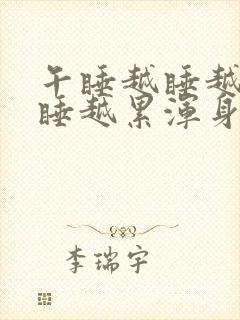 午睡越睡越
睡越累浑身
李瑞宇